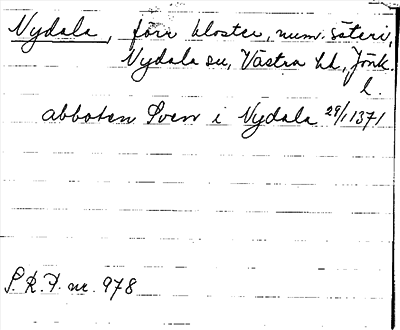 Nydala, förr kloster, num. säteri,
Nydala sn, Västra hd, Jönk.
l.
abboten Sven i Nydala 29/1 1371
S.R.P. nr. 978